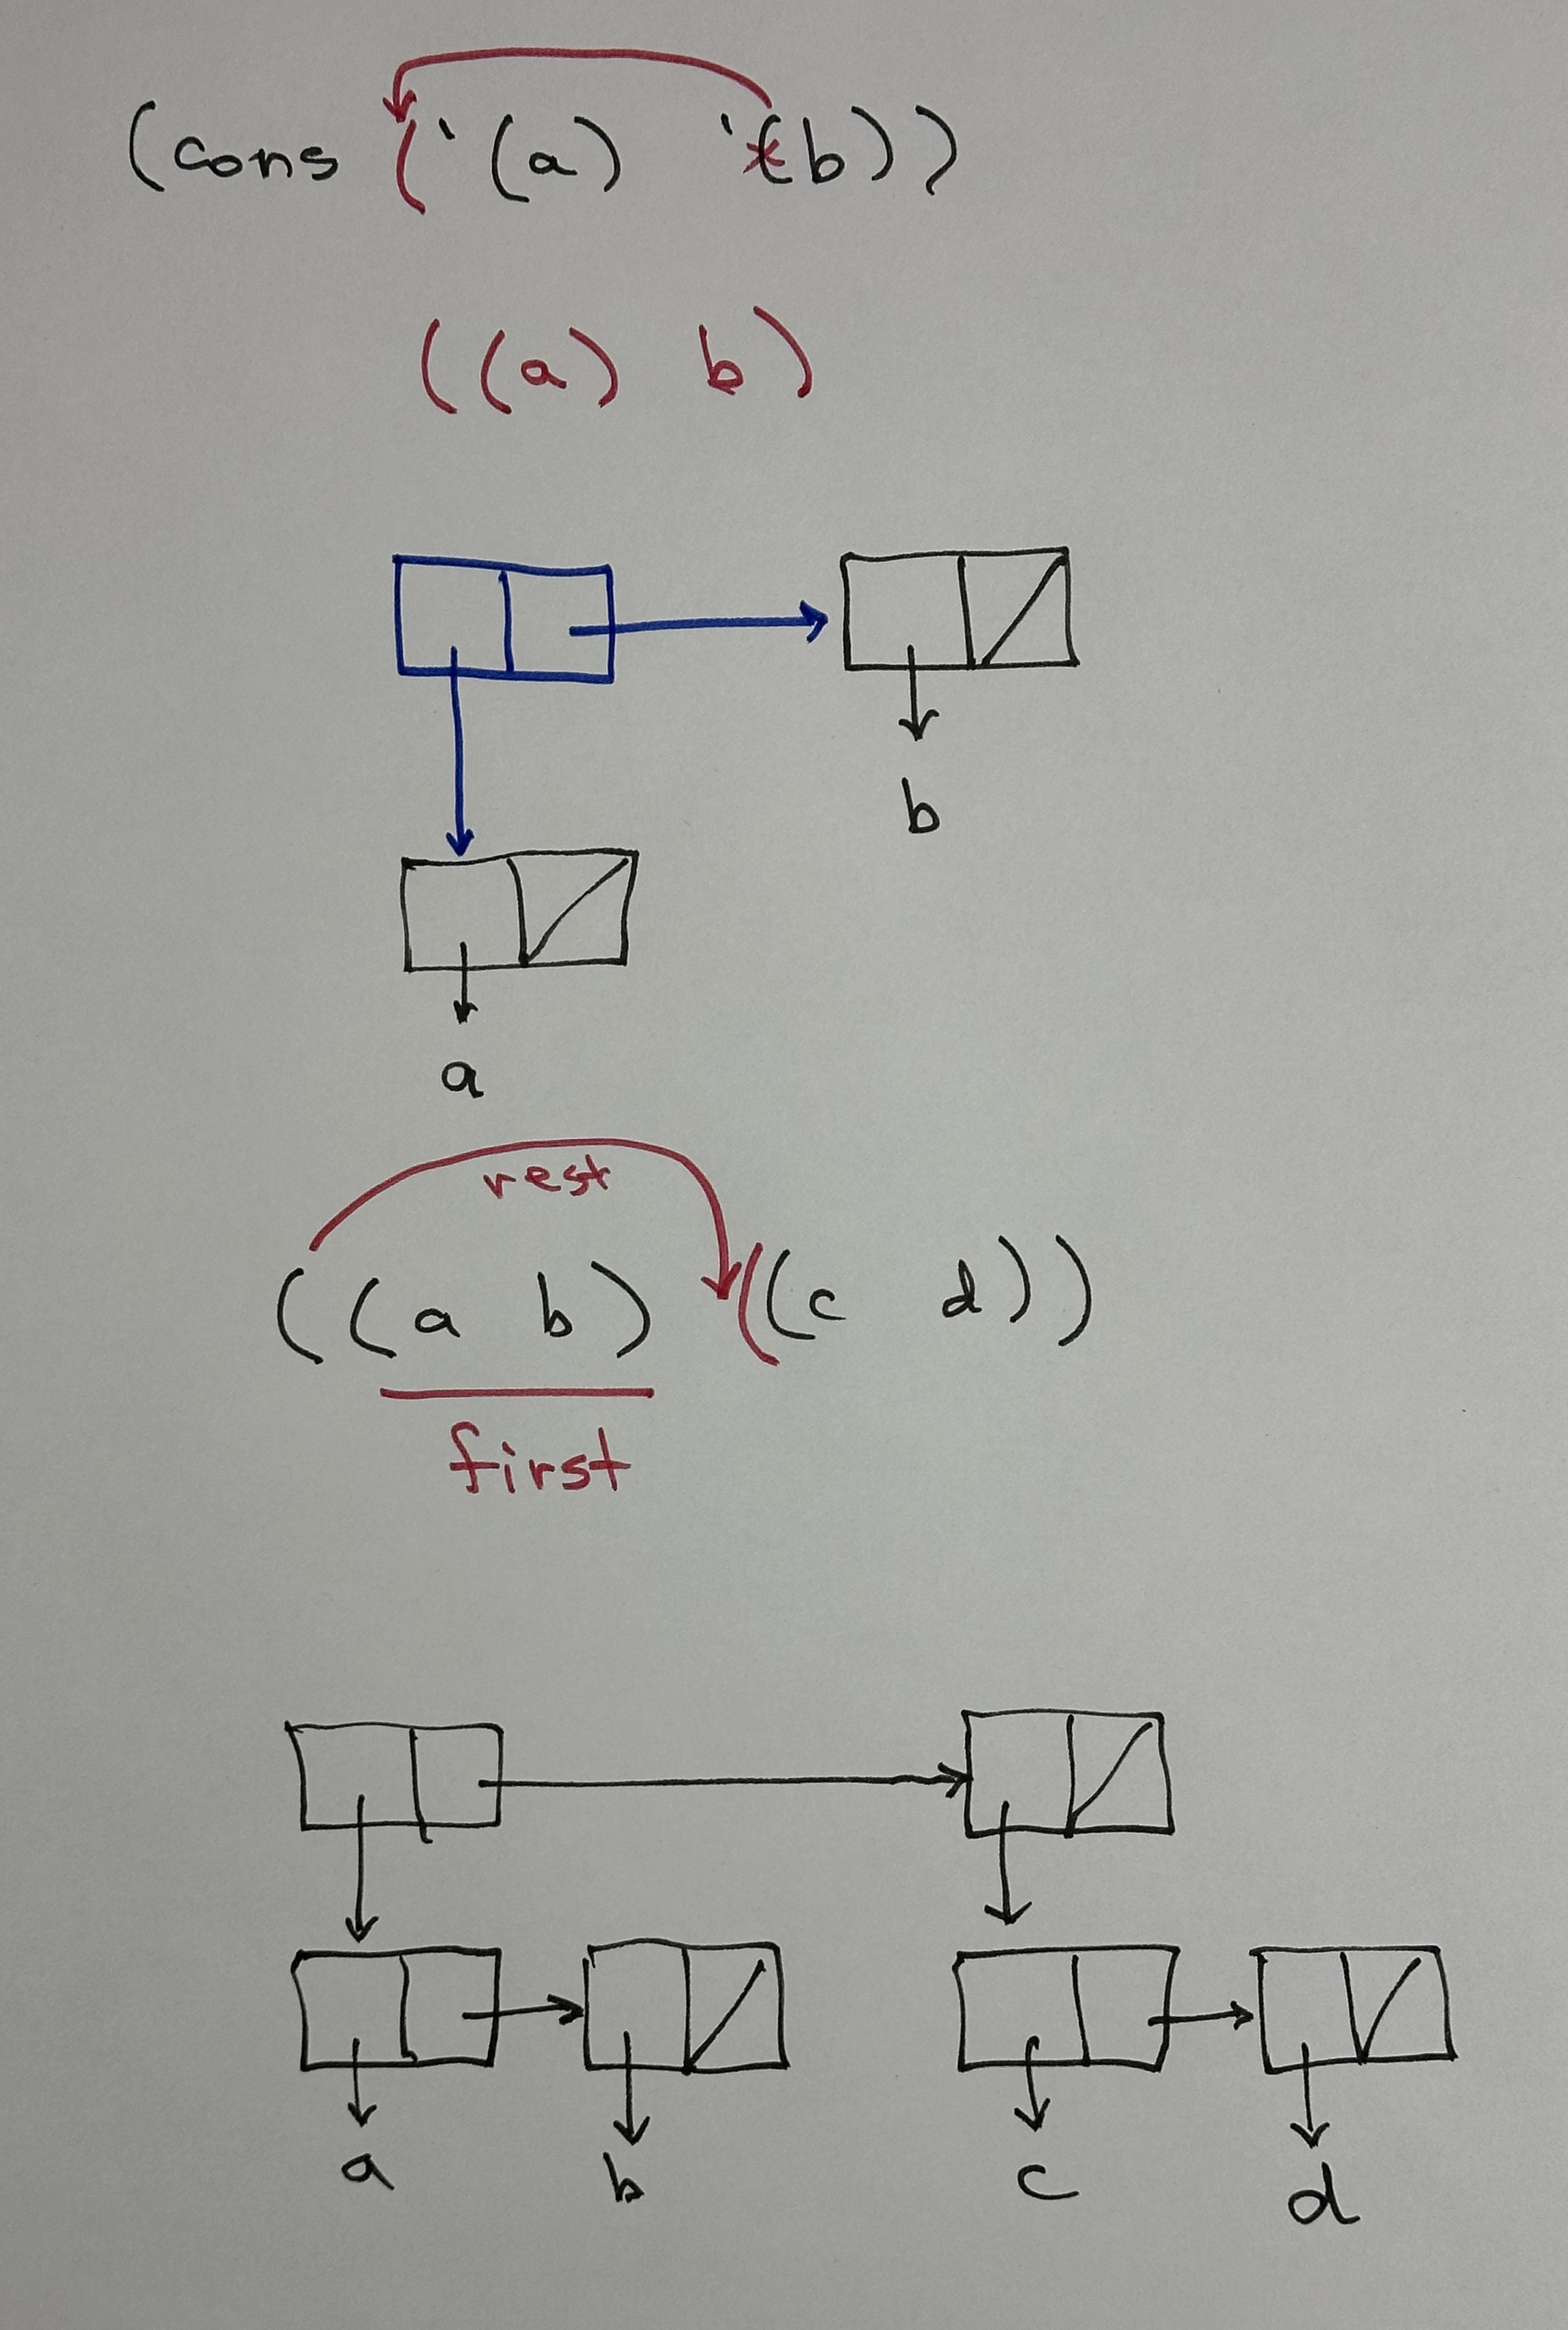 (cons ('(a) '(b))
((a) b)
b
a
rest
((a b) ((c d))
first
a b c d